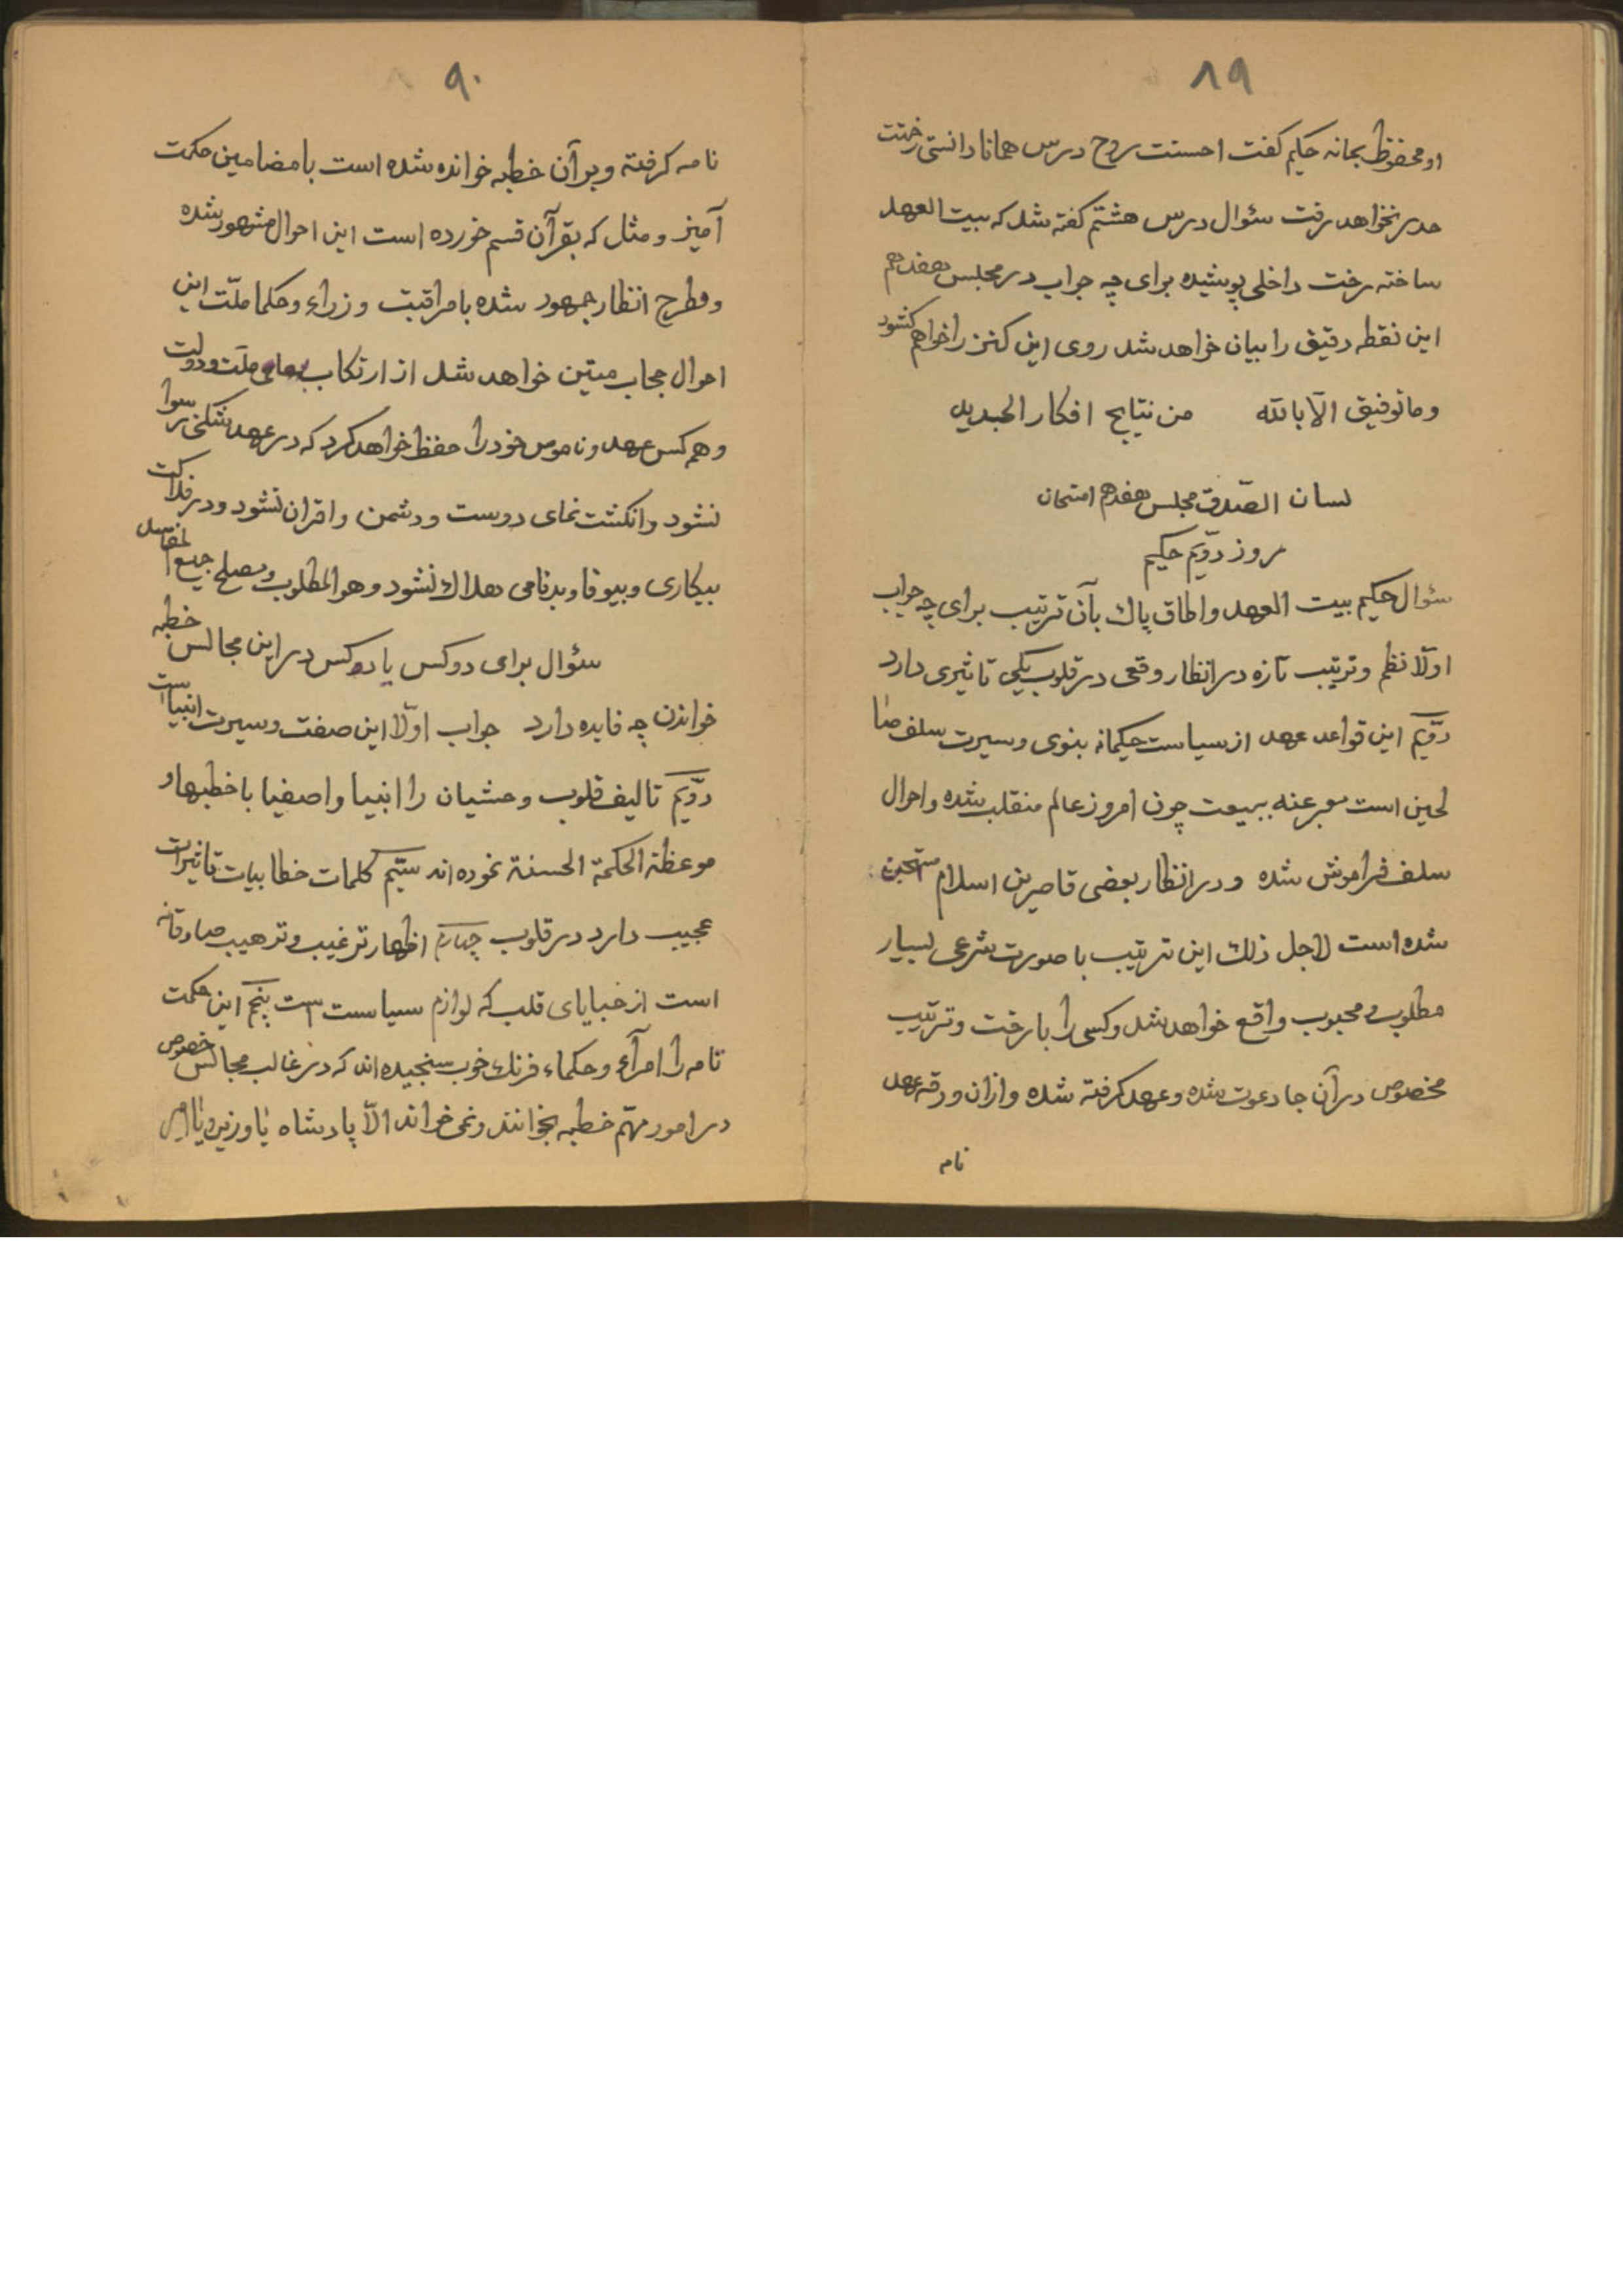 ۸۹
او محفوظ بجانه حکیم کفت احسنت روح درس همانا دانستی زحمت
هدر نخواهد رفت سئوال درس هشتم کفته شد که بیت العهد
ساخته رخت داخلی پوشیده برای چه جواب در مجلس هفدهم
این نقطه دقیق را بیان خواهد شد روی این کنز را خواهم کشود
وما توفیقی الّا بالله من نتایج افکار الجدید
لسان الصّدق مجلس هفدهم امتحان
روز دوّیم حکیم
سئوال حکیم بیت العهد واطاق پاك بآن ترتیب برای چه جواب
اولّا نظم وترتیب تازه در انظار وقعی در قلوب یکی تاثیری دارد
دوّیم این قواعد عهد از سیاست حکیمانه بنوی وسیرت سلف صا
لحین است معبر عنه ببیعت چون امروز عالم منقلب شده واحوال
سلف فراموش شده ودر انظار بعضی قاصرین اسلام مستهجن
شده است لاجل ذلك این ترتیب با صورت شرعی بسیار
مطلوب ومحبوب واقع خواهد شد وکسی را با رخت وترتیب
مخصوص در آن جا دعوت شده وعهد کرفته شده وازان ورقه عهد
نامه
۹۰
نامه کرفته وبر آن خطبه خوانده شده است با مضامین حکمت
آمیز ومثل که بقرآن قسم خورده است این احوال مشهور شده
ومطرح انظار جمهور شده با مراقبت وزراء وحکما ملّت این
احوال حجاب متین خواهد شد از ارتکاب ملّت ودولت
وهر کس عهد وناموس خود را حفظ خواهد کرد که در عهد شکنی رسوا
نشود وانکشت نمای دوست ودشمن واقران نشود ودر فلاکت
بیکاری وبیوفا وبدنامی هلاك نشود وهو المطلوب ومصلح جمیع المقاصد
سئوال برای دو کس یا دو کس در این مجالس خطبه
خواندن چه فایده دارد جواب اولّا این صفت وسیرت انبیا است
دوّیم تالیف قلوب وحشیان را انبیا واصفیا با خطبها و
موعظة الحکمة الحسنة نموده اند سیّم کلمات خطابیات تاثیرات
عجیب دارد در قلوب چهارم اظهار ترغیب وترهیب صادقانه
است از خبایای قلب که لوازم سیاست است پنجم این حکمت
تامه را امرآء وحکماء فرنك خوب سنجیده اند که در غالب مجالس خصوص
در امور مهّم خطبه بخوانند ونمی خواند الّا پادشاه یا وزیر ویا